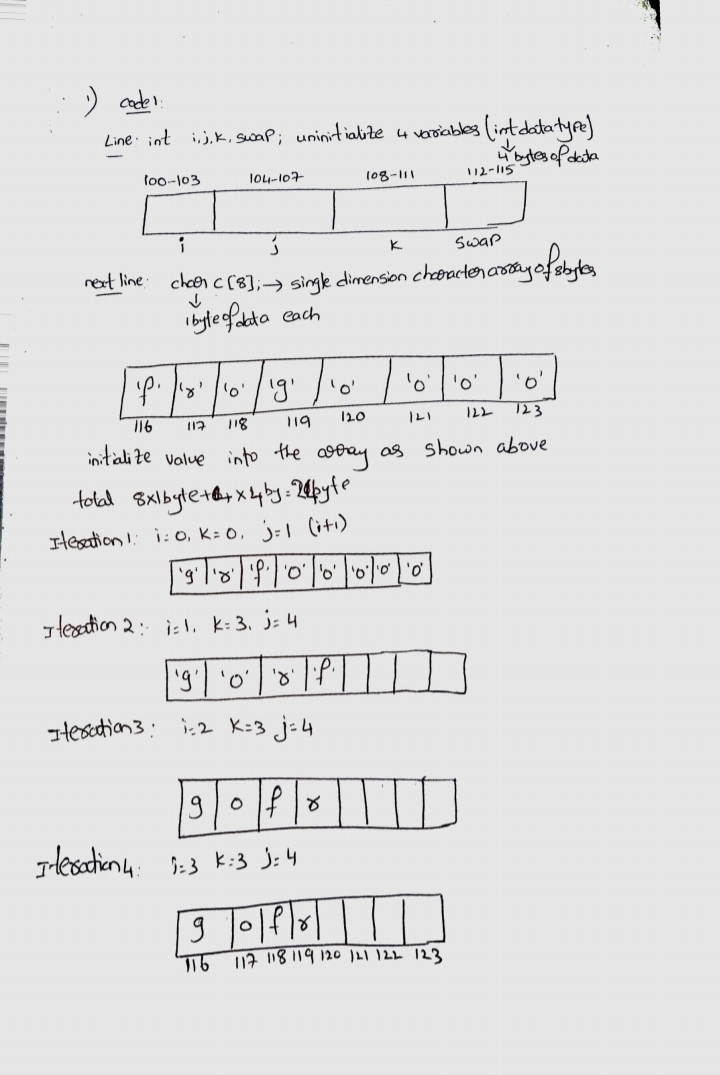 1) code1:
Line: int i,j,k, swap; uninitialize 4 variables (int datatype)
4 bytes of data
100-103 104-107 108-111 112-115
i j k swap
next line: char c[8]; → single dimension character array of 8bytes
1byte of data each
'f' 'r' 'o' 'g' 'o' 'o' 'o' 'o'
116 117 118 119 120 121 122 123
initialize value into the array as shown above
total 8x1byte+4x4by=24byte
Iteration1: i=0, k=0, j=1 (i+1)
'g' 'r' 'f' 'o' 'o' 'o' 'o' 'o'
Iteration 2: i=1, k=3, j=4
'g' 'o' 'r' 'f'
Iteration3: i=2 k=3 j=4
g o f r
Iteration4: i=3 k=3 j=4
g o f r
116 117 118 119 120 121 122 123